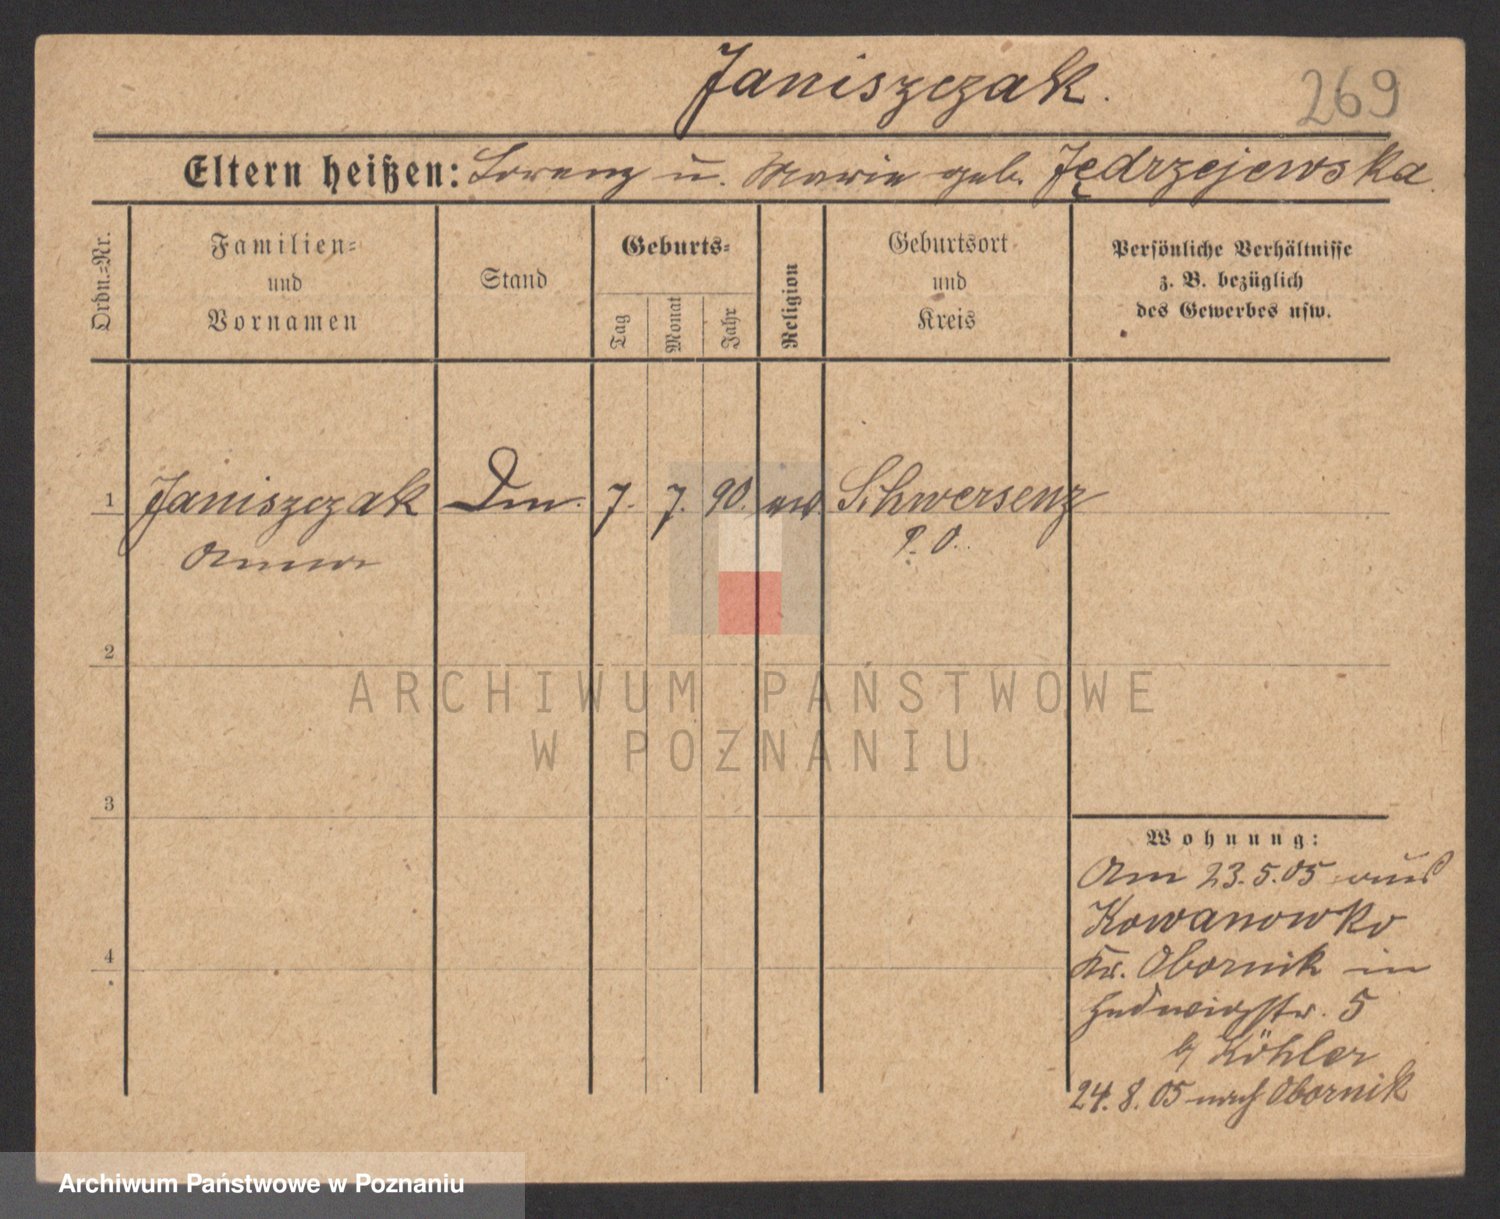 Janiszczak.
269
Eltern heißen: Lorenz u. Marie geb. Jędrzejewska.
Ordn.=Nr.
Familien=
und
Vornamen
Stand
Geburts=
Tag
Monat
Jahr
Religion
Geburtsort
und
Kreis
Persönliche Verhältnisse
z. B. bezüglich
des Gewerbes usw.
1 Janiszczak 7. 7. 90. Schwersenz
Anna P. O.
2
3
4
Wohnung:
Am 23.5.05 aus
Kowanowko
Kr. Obornik in
Hedwigstr. 5
b/ Köhler
24. 8. 05 nach Obornik
ARCHIWUM PAŃSTWOWE
W POZNANIU
Archiwum Państwowe w Poznaniu